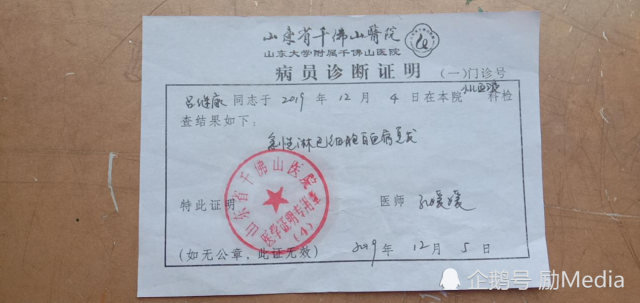 山东省千佛山醫院
山东大学附属千佛山医院
病员诊断证明
(一)门诊号
同志于 2019 年 12 月 4 日在本院 血液 科检
查结果如下：
急性淋巴细胞白血病复发
山东省千佛山医院
医学证明专用章
(4)
特此证明
医师 孔媛媛
(如无公章，此证无效)
2019 年 12 月 5 日
企鹅号 励Media